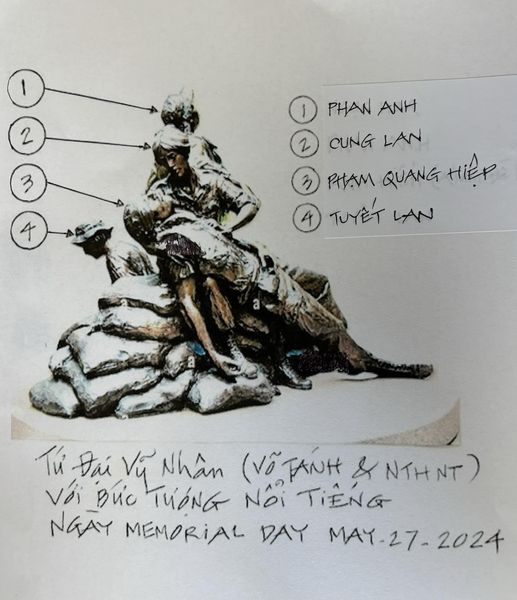 1 PHAN ANH
2 CUNG LAN
3 PHẠM QUANG HIỆP
4 TUYẾT LAN
1
2
3
4
Tứ Đái Vỹ Nhân (VÕ TÁNH & NTHNT)
VỚI BỨC TƯỢNG NỔI TIẾNG
NGÀY MEMORIAL DAY MAY-27-2024